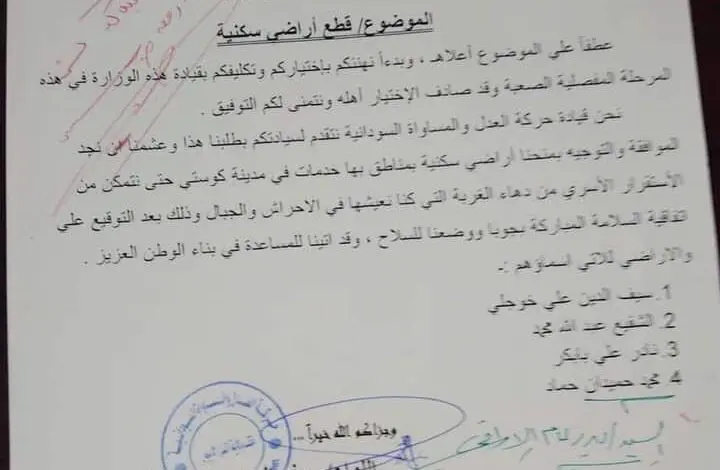 الموضوع/ قطع أراضي سكنية
عطفاً علي الموضوع أعلاهـ ، وبدءاً نهنئكم بإختياركم وتكليفكم بقيادة هذه الوزارة في هذه
المرحلة المفصلية الصعبة وقد صادف الإختيار أهله ونتمنى لكم التوفيق .
نحن قيادة حركة العدل والمساواة السودانية نتقدم لسيادتكم بطلبنا هذا وعشمنا أن نجد
الموافقة والتوجيه بمنحنا أراضي سكنية بمناطق بها خدمات في مدينة كوستي حتى نتمكن من
الأستقرار الأسري من دهاء الغربة التي كنا نعيشها في الاحراش والجبال وذلك بعد التوقيع علي
اتفاقية السلامة المباركة بجوبا ووضعنا للسلاح ، وقد اتينا للمساعدة في بناء الوطن العزيز .
والاراضي للاتي اسماؤهم :-
1. سيف الدين علي خوجلي
2. الشفيع عبد الله محمد
3. نادر علي بابكر
4. محمد حميدان حماد
وجزاكم الله خيراً ...
السيد/ مدير عام الاراضي